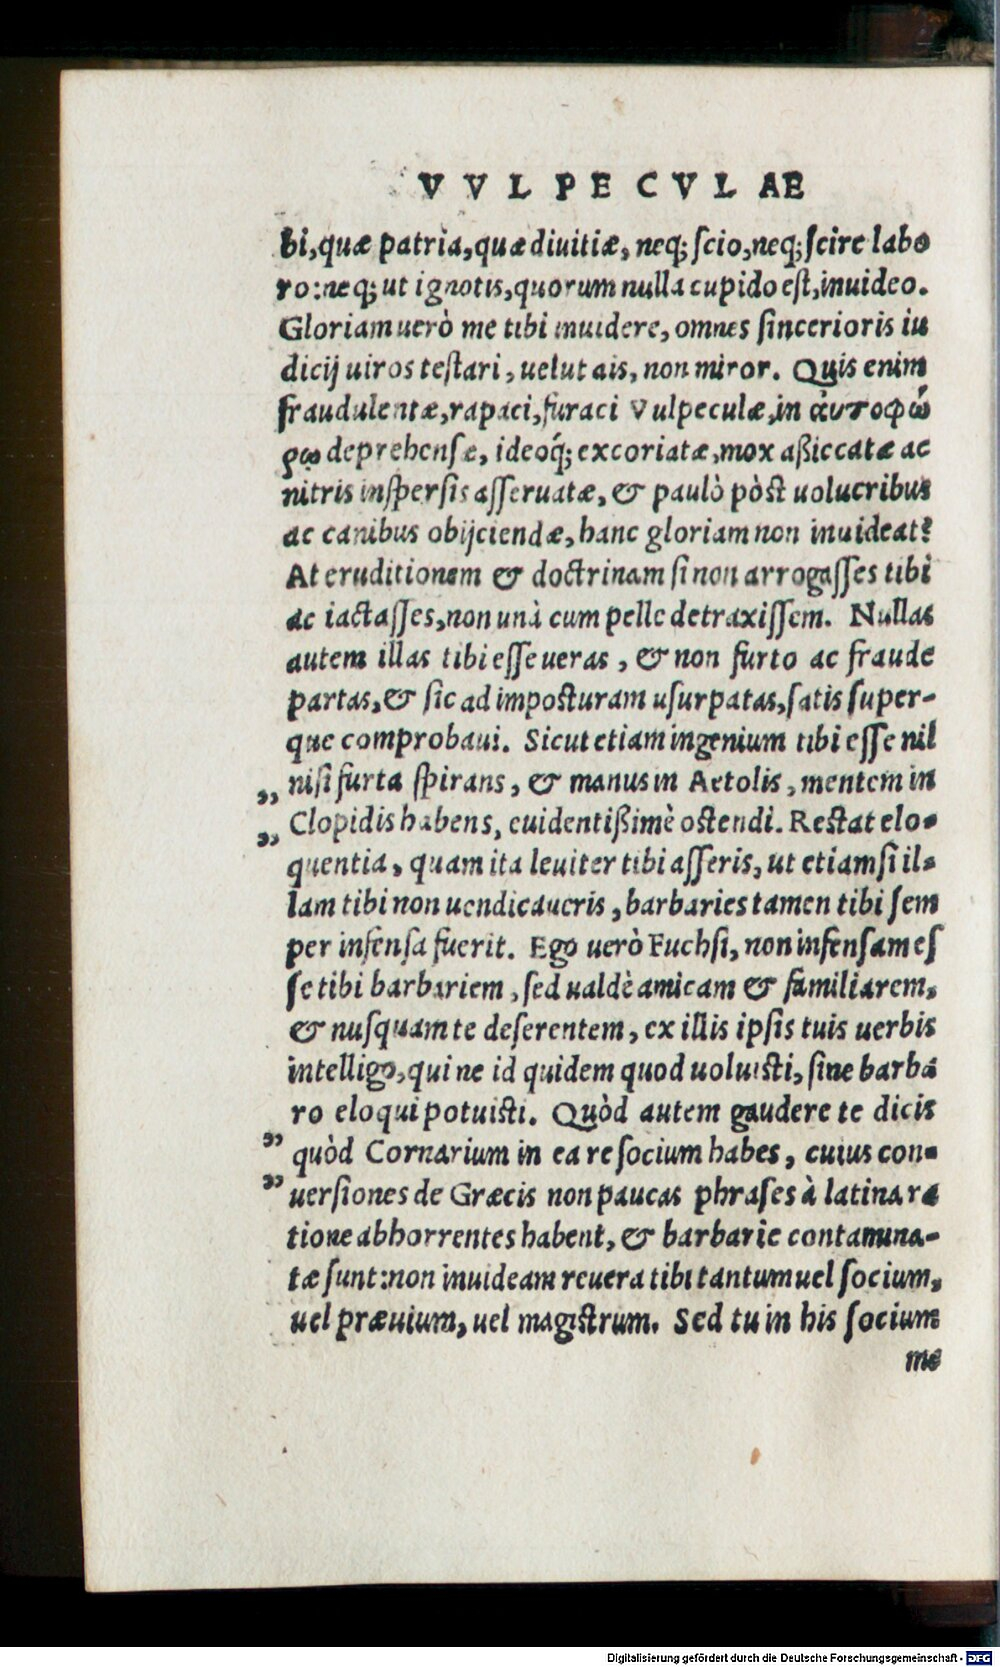 VVLPECVLAE
bi, quæ patria, quæ diuitiæ, neq; scio, neq; scire labo
ro: neq; ut ignotis, quorum nulla cupido est, inuideo.
Gloriam uerò me tibi inuidere, omnes sincerioris iu
dicij uiros testari, uelut ais, non miror. Quis enim
fraudulentæ, rapaci, furaci Vulpeculæ, in ἀυτοφώ
ρῳ deprehensæ, ideoq́; excoriatæ, mox aßiccatæ ac
nitris inspersis asseruatæ, & paulò pòst uolucribus
ac canibus obijciendæ, hanc gloriam non inuideat?
At eruditionem & doctrinam si non arrogasses tibi
ac iactasses, non unà cum pelle detraxissem. Nullas
autem illas tibi esse ueras, & non furto ac fraude
partas, & sic ad imposturam usurpatas, satis super-
que comprobaui. Sicut etiam ingenium tibi esse nil
„ nisi furta spirans, & manus in Aetolis, mentem in
„ Clopidis habens, euidentißimè ostendi. Restat elo-
quentia, quam ita leuiter tibi asseris, ut etiamsi il-
lam tibi non uendicaueris, barbaries tamen tibi sem
per infensa fuerit. Ego uerò Fuchsi, non infensam es
se tibi barbariem, sed ualdè amicam & familiarem,
& nusquam te deserentem, ex illis ipsis tuis uerbis
intelligo, qui ne id quidem quod uoluisti, sine barba
ro eloqui potuisti. Quòd autem gaudere te dicis
„ quòd Cornarium in ea re socium habes, cuius con-
„ uersiones de Græcis non paucas phrases à latina ra
tione abhorrentes habent, & barbarie contamina-
tæ sunt: non inuideam reuera tibi tantum uel socium,
uel præuium, uel magistrum. Sed tu in his socium
me
Digitalisierung gefördert durch die Deutsche Forschungsgemeinschaft - DFG